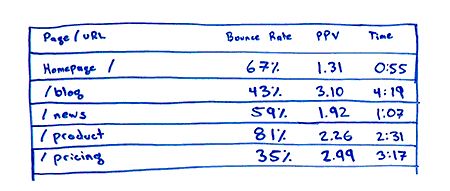 Page / URL Bounce Rate PPV Time
Homepage / 67% 1.31 0:55
/ blog 43% 3.10 4:19
/ news 59% 1.92 1:07
/ product 81% 2.26 2:31
/ pricing 35% 2.99 3:17